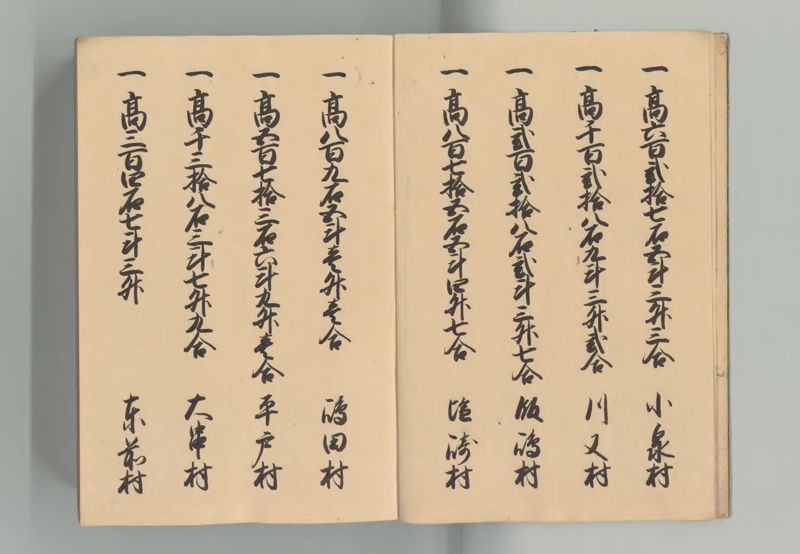 一高六百弐拾七石五斗三升三合 小泉村
一高千百弐拾八石九斗三升弐合 川又村
一高弐百弐拾八石弐斗三升七合 飯嶋村
一高八百七拾五石五斗四升七合 塩崎村
一高八百九石五斗壱升壱合 嶋田村
一高五百七拾三石六斗九升壱合 平戸村
一高千三拾八石三斗七升九合 大串村
一高三百四石七斗三升 東前村